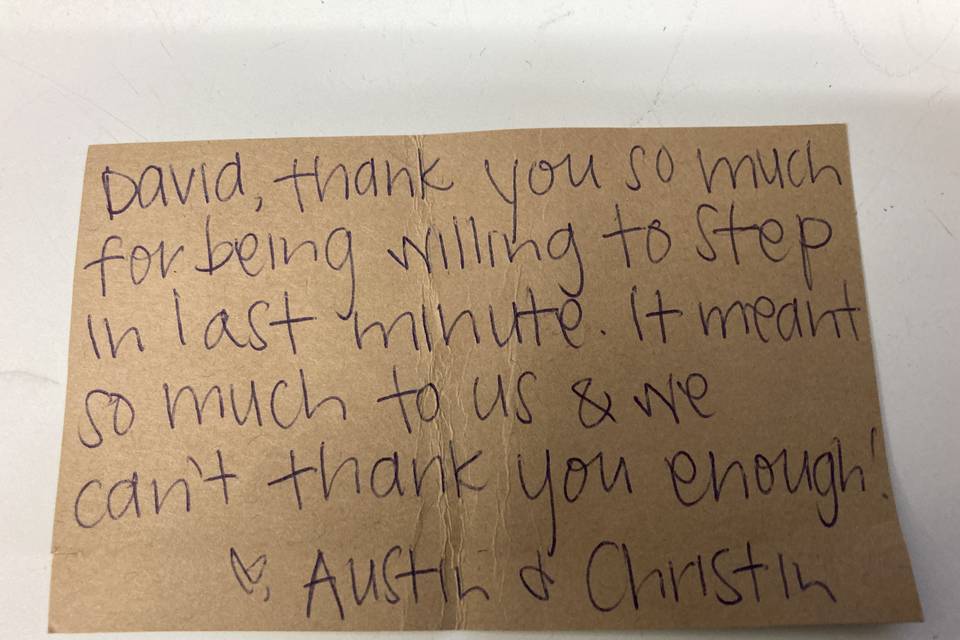 David, thank you so much
for being willing to step
in last minute. It meant
so much to us & we
can't thank you enough!
♡, Austin & Christin